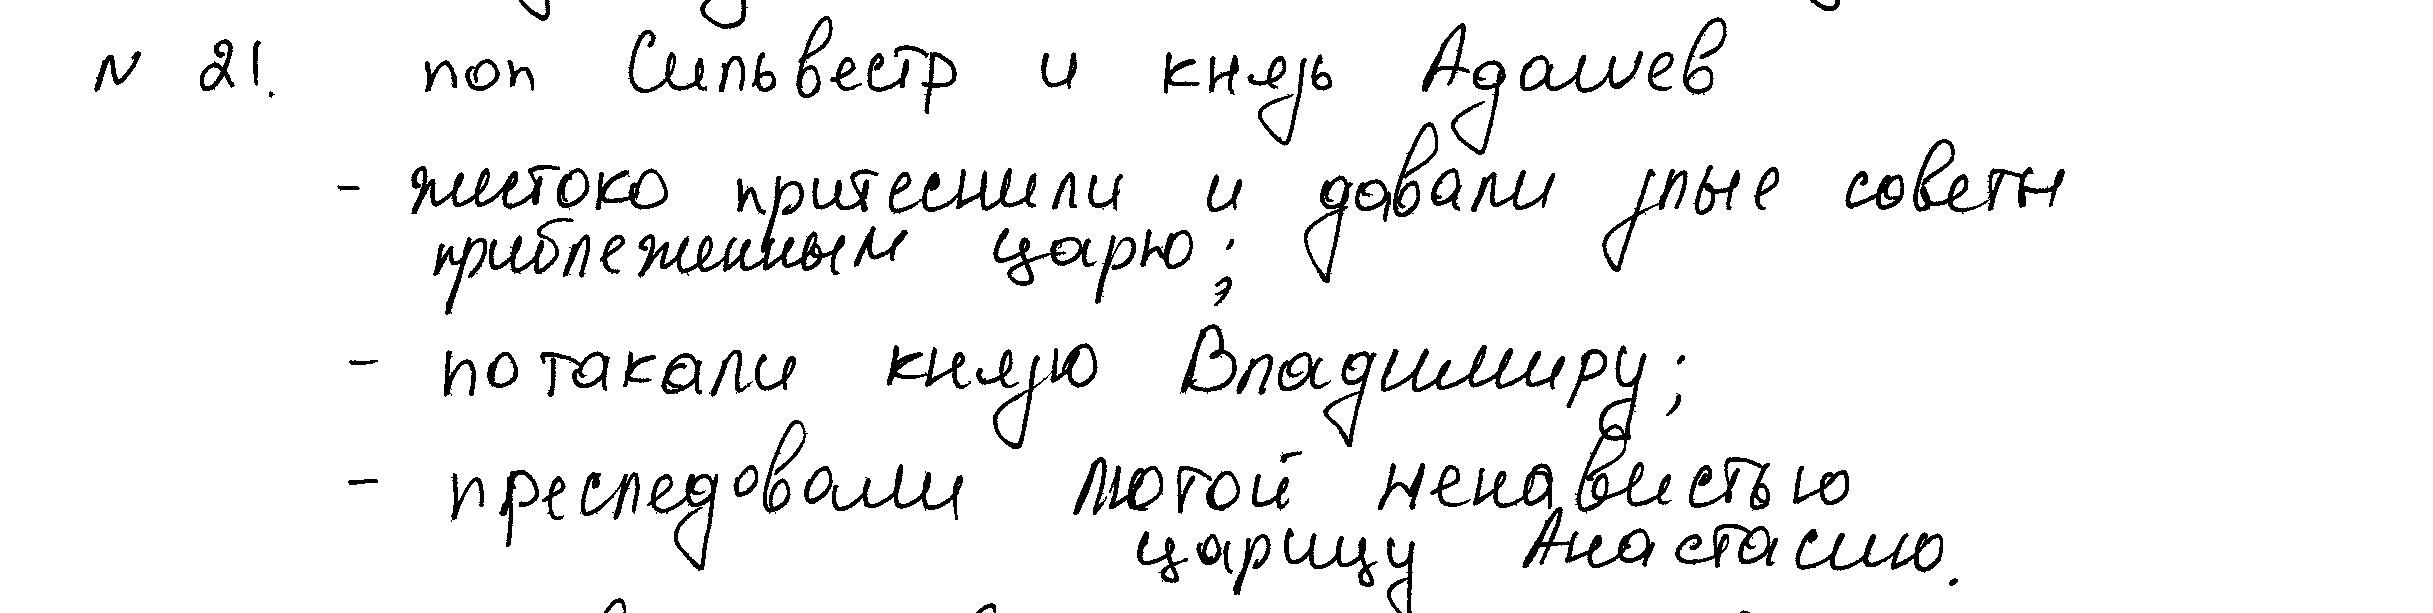 N 21. поп Сильвестр и князь Адашев
- жестоко притеснили и давали злые советы
приблеженным царю;
- потакали князю Владимиру;
- преследовали лютой ненавистью
царицу Анастасию.